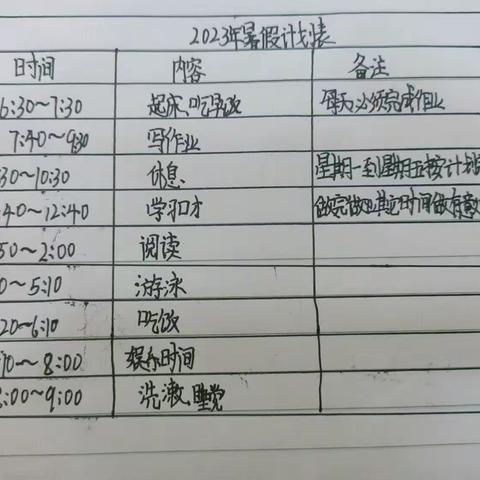 2023年暑假计划表
时间 内容 备注
6:30~7:30 起床、吃早饭 每天必须完成作业
7:40~9:30 写作业
30~10:30 休息 星期一到星期五按计划
40~12:40 学习口才 做完做其它时间做有意
50~2:00 阅读
0~5:10 游泳
20~6:10 吃饭
10~8:00 娱乐时间
:00~9:00 洗漱、睡觉